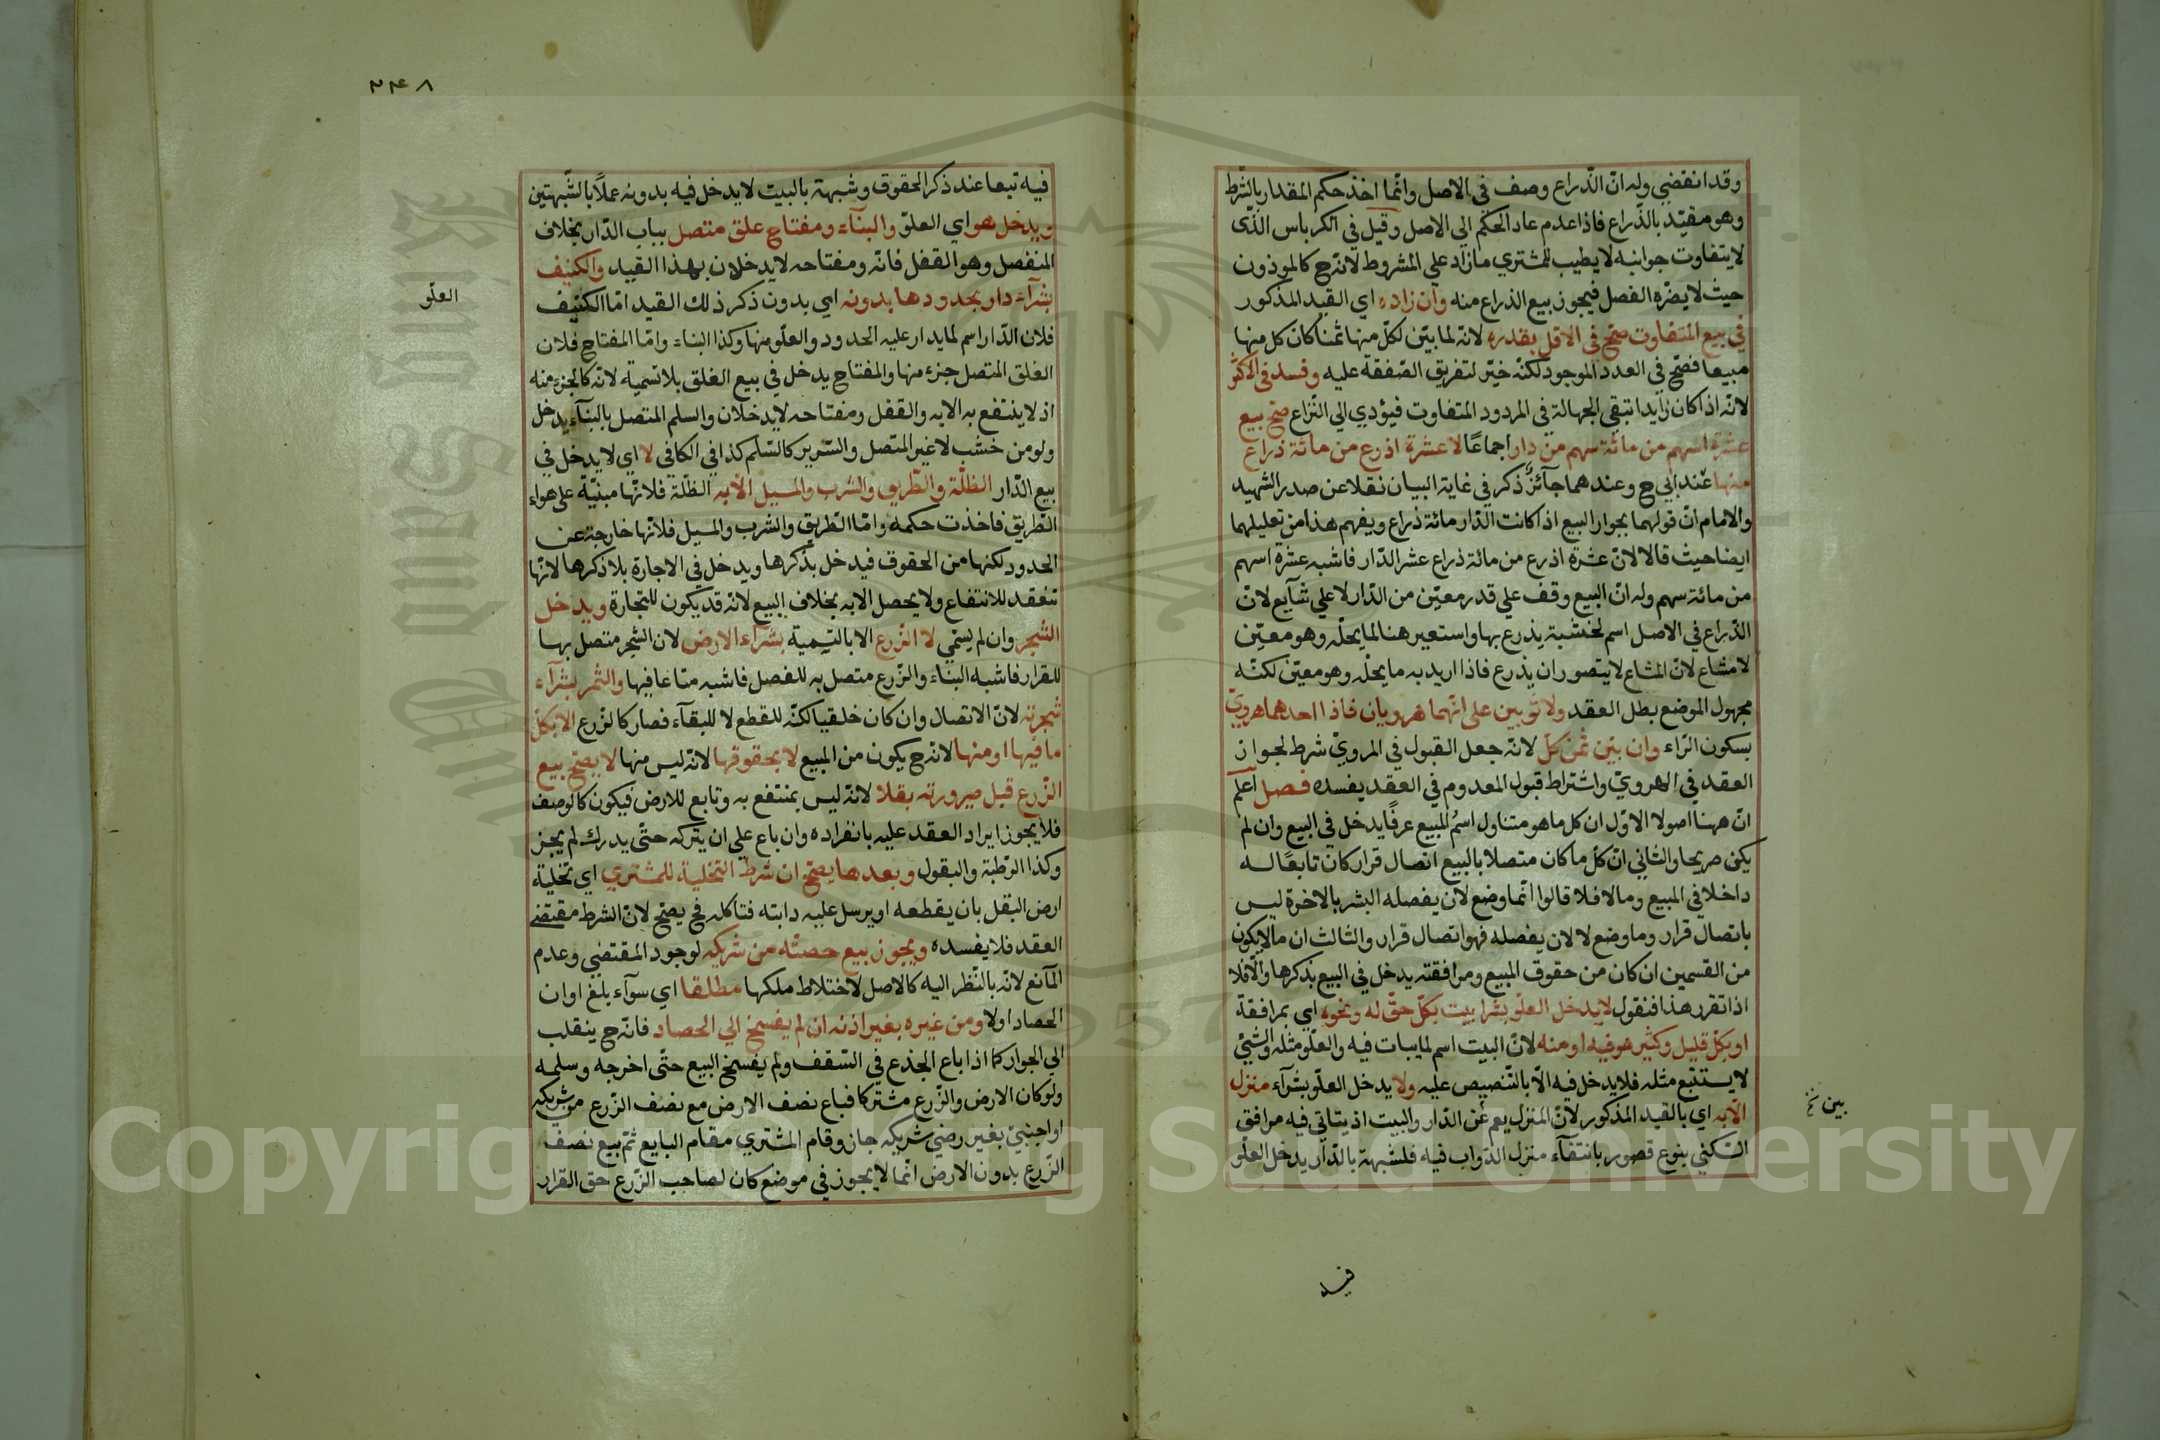 وقد انقضي وله انّ الذّراع وصف في الاصل وانّما اخذ حكم المقدار بالشّرط
وهو مقيّد بالذّراع فاذا عدم عاد الحكم الي الاصل وقيل في الكرباس الذّى
لا يتفاوت جوانبه لا يطيب للمشتري ما زاد علي المشروط لانّه ح كالموزون
حيث لا يضرّه الفصل فيجوز بيع الذراع منه وان زاده اي القيد المذكور
في بيع المتفاوت صحّ في الاقل بقدره لانّه لما بيّن لكلّ منها ثمنا كان كل منها
مبيعا فصحّ في العدد الموجود لكنّه خيّر لتفريق الصّفقة عليه وفسد في الاكثر
لانّه اذا كان زايدا تبقي الجهالة في المردود المتفاوت فيؤدي الي النّزاع صحّ بيع
عشرة اسهم من مائة سهم من دار اجماعًا لا عشرة اذرع من مائة ذراع
منها عند ابي ح وعندهما جآئز ذكر في غاية البيان نقلا عن صدر الشهيد
والامام انّ قولهما بجوار البيع اذا كانت الدّار مائة ذراع ويفهم هذا من تعليلهما
ايضا حيث قالا لانّ عشرة اذرع من مائة ذراع عشر الدّار فاشبه عشرة اسهم
من مائة سهم وله انّ البيع وقف علي قدر معيّن من الدّار لا علي شآيع لانّ
الذّراع في الاصل اسم لخشبة يذرع بها واستعير هنا لما يحلّه وهو معيّن
لا مشاع لانّ المشاع لا يتصور ان يذرع فاذا اريد به ما يحلّه وهو معيّن لكنّه
مجهول الموضع بطل العقد ولا ثوبين على انّهما هرويان فاذا احدهما هرويّ
بسكون الرّاء وان بيّن ثمن كلّ لانّه جعل القبول في المرويّ شرط لجواز
العقد في الهرويّ واشتراط قبول المعدوم في العقد يفسده فصل اعلم
انّ ههنا اصولا الاوّل ان كل ما هو متناول اسم المبيع عرفًا يدخل في البيع وان لم
يكن صريحا والثاني انّ كلّ ما كان متصلا بالبيع اتصال قرار كان تابعًا له
داخلا في المبيع وما لا فلا قالوا انّما وضع لان يفصله البشر بالاخرة ليس
باتصال قرار وما وضع لا لان يفصله فهو اتصال قرار والثالث ان مالا يكون
من القسمين ان كان من حقوق المبيع ومرافقته يدخل في البيع بذكرها والّا فلا
اذا تقرر هذا فنقول لا يدخل العلّو بشرا بيت بكلّ حقّ له ونحوه اي بمرافقة
او بكلّ قليل وكثير هو فيه او منه لانّ البيت اسم لما يبات فيه والعلّو مثله والشيئ
لا يستتبع مثله فلا يدخل فيه الّا بالتّنصيص عليه ولا يدخل العلّو بشرآء منزل
الّا به اي بالقيد المذكور لانّ المنزل يعم عن الدّار والبيت اذ يتاتي فيه مرافق
السّكني بنوع قصور بانتفآء منزل الدّواب فيه فلشبهة بالدّار يدخل العلّو
بين نخ
فيه
٣٤٨
فيه تبعا عند ذكر الحقوق وشبهة بالبيت لا يدخل فيه بدونه عملًا بالشّبهتين
ويدخل هو اي العلوّ والبنآء ومفتاح غلق متصل بباب الدّار بخلاف
المنفصل وهو القفل فانّه ومفتاحه لا يدخلان بهذا القيد والكنيف
بشرآء دار بحدودها بدونه اي بدون ذكر ذلك القيد امّا الكنيف
فلان الدّار اسم لما يدار عليه الحدود والعلّو منها وكذا البناء وامّا المفتاح فلان
الغلق المتصل جزء منها والمفتاح يدخل في بيع الغلق بلا تسمية لانّه كالجزء منه
اذ لا ينتفع به الا به والقفل ومفتاحه لا يدخلان والسلم المتصل بالبنآء يدخل
ولو من خشب لا غير المتصل والسّرير كالسّلم كذا في الكافي لا اي لا يدخل في
بيع الدّار الظلّة والطّريق والشرب والمسيل الّا به الظلّة فلانّها مبنيّة على هواء
الطّريق فاخذت حكمه وامّا الطّريق والشرب والمسيل فلانّها خارجة عن
الحدود لكنها من الحقوق فيدخل بذكرها ويدخل في الاجارة بلا ذكرها لانّها
تنعقد للانتفاع ولا يحصل الا به بخلاف البيع لانّه قد يكون للتجارة ويدخل
الشّجر وان لم يسمّي لا الزّرع الا بالتسمية بشرآء الارض لان الشجر متصل بها
للقرار فاشبه البناء والزّرع متصل به للفصل فاشبه متاعا فيها والثمر بشرآء
شجرته لانّ الاتصال وان كان خلقيا لكنّه للقطع لا للبقآء فصار كالزّرع الا بكلّ
ما فيها او منها لانّه ح يكون من المبيع لا بحقوقها لانّه ليس منها لا يصحّ بيع
الزّرع قبل صيرورته بقلا لانّه ليس بمنتفع به وتابع للارض فيكون كالوصف
فلا يجوز ايراد العقد عليه بانفراده وان باع علي ان يتركه حتّى يدرك لم يجز
وكذا الرّطبة والبقول وبعدها يصحّ ان شرط التخلية للمشتري اي تخلية
ارض البقل بان يقطعه او يرسل عليه دابته فتاكله فح يصحّ لانّ الشرط مقتضى
العقد فلا يفسده ويجوز بيع حصّته من شريكه لوجود المقتضي وعدم
المآنع لانّه بالنّظر اليه كالاصل لاختلاط ملكها مطلقا اي سوآء بلغ اوان
الحصاد اولا ومن غيره بغير اذنه ان لم يفسخ الي الحصاد فانّه ح ينقلب
الي الجواز كما اذا باع الجذع في السّقف ولم يفسخ البيع حتّى اخرجه وسلمه
ولو كان الارض والزّرع مشتركا فباع نصف الارض مع نصف الزّرع من شريكه
او اجنبيّ بغير رضي شريكه جاز وقام المشتري مقام البايع ثمّ بيع نصف
الزّرع بدون الارض انّما لا يجوز في موضع كان لصاحب الزّرع حق القرار
العلّو
Copyright © King Saud University